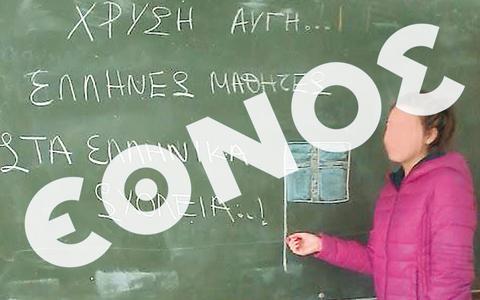 ΧΡΥΣΗ ΑΥΓΗ...!
ΕΛΛΗΝΕΣ ΜΑΘΗΤΕΣ
ΣΤΑ ΕΛΛΗΝΙΚΑ
ΣΧΟΛΕΙΑ...!
ΕΘΝΟΣ